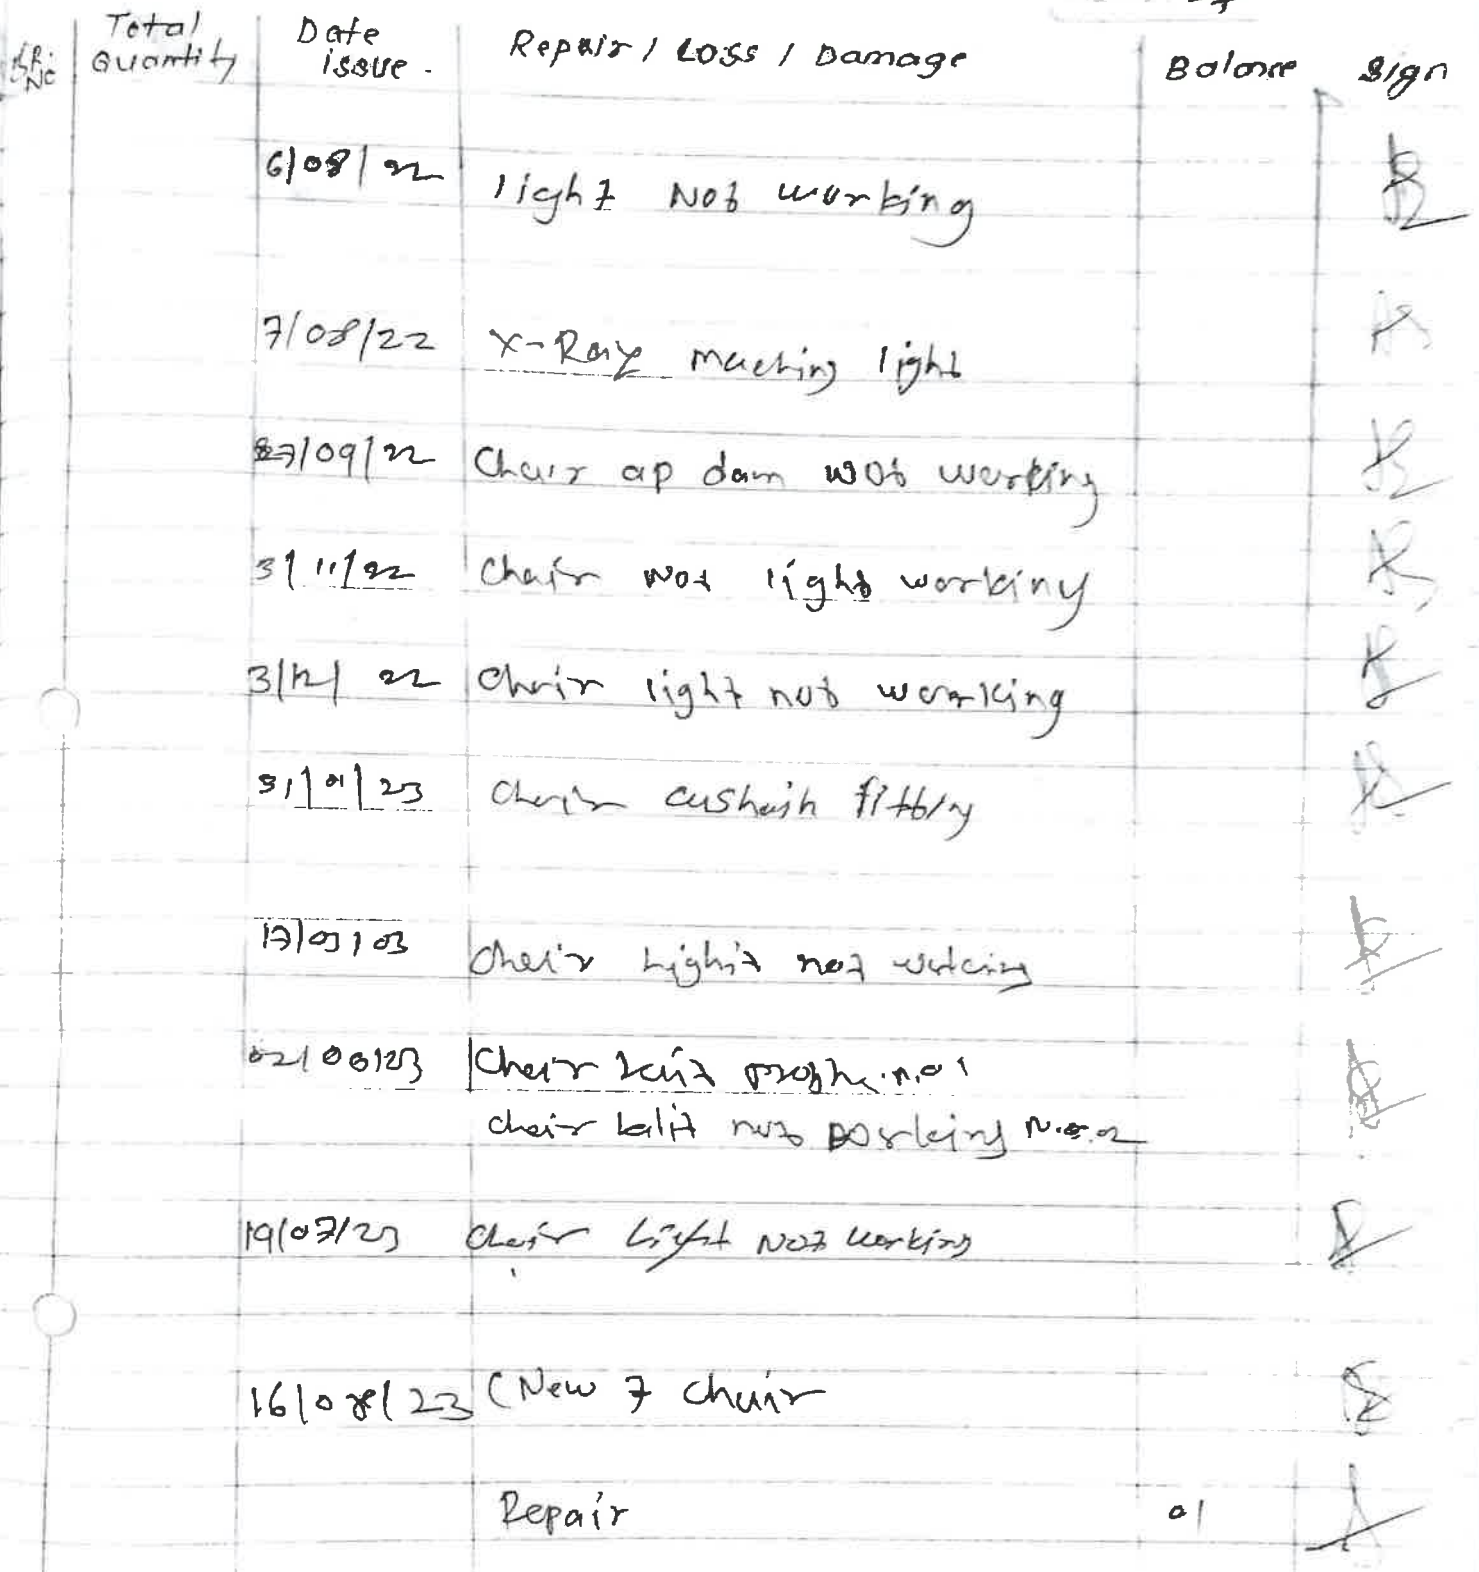 SR. NO Total Quantity Date issue. Repair / Loss / Damage Balance Sign
6/08/22 light Not working
7/08/22 X-Ray maching light
27/09/22 Chair ap dam not working
3/11/22 Chair Not light working
3/12/22 Chair light not working
31/01/23 Chair cushain fitting
17/03/03 Chair Light not working
02/06/23 Chair n.o 1
chair not working N.o.2
19/07/23 Chair Light Not working
16/08/23 (New 7 chair
Repair 01